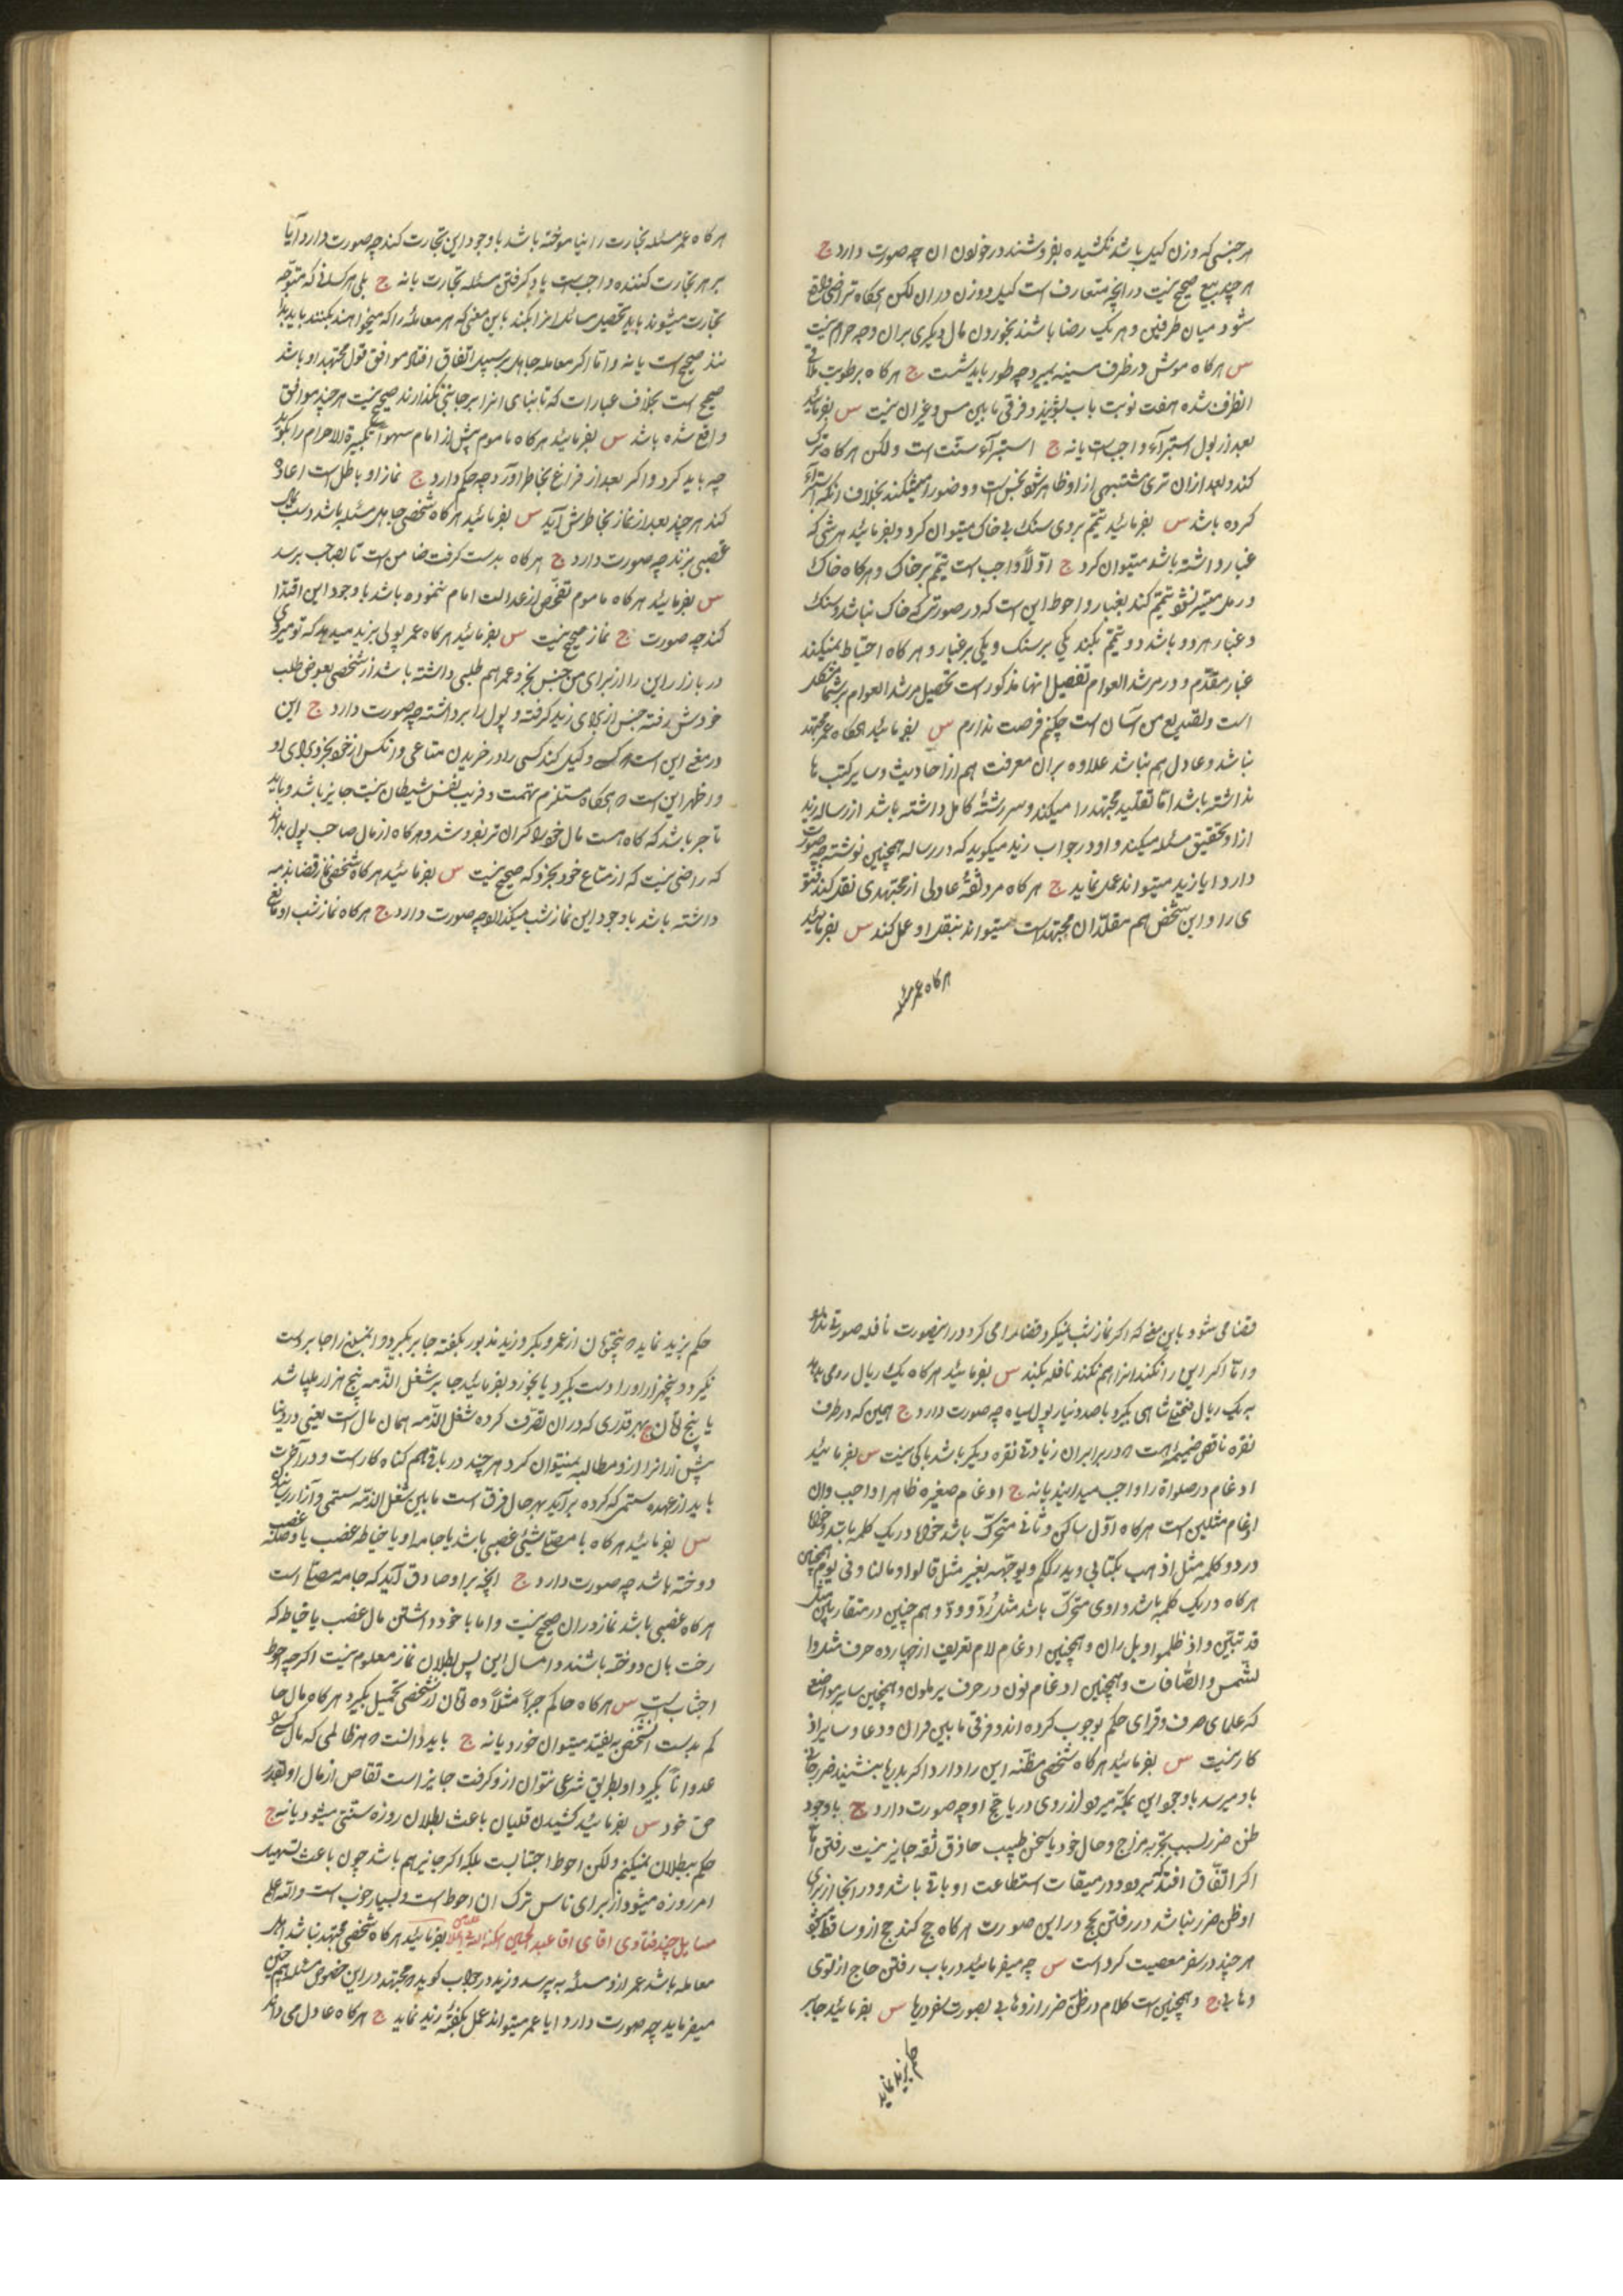 هر جنسی که وزن کیل باشد نکشیده بفروشند در خوردن ان چه صورت دارد ج
هر چند بیع صحیح نیست در انچه متعارف است کیل و وزن در ان لکن هرکاه تراضی واقع
شود میان طرفین و هر یک رضا باشند بخوردن مال دیکری بران وجه حرام نیست
س هرکاه موش در ظرف مسینه بمیرد چه طور باید شست ج هرکاه برطوبت ملاقی
انظرف شده هفت نوبت باب بشویند و فرقی مابین مس و غیر ان نیست س بفرمائید
بعد از بول استبرآء واجبست یا نه ج استبرآء سنّت است ولکن هرکاه ترک
کند و بعد از ان تری مشتبهی از او ظاهر شود نجس است و وضو را میشکند بخلاف انکه استبرآء
کرده باشد س بفرمائید تیمّم بروی سنک بی خاک میتوان کرد و بفرمائید هر شی که
غبار داشته باشد میتوان کرد ج اوّلاً واجب است تیمّم بر خاک و هرکاه خاک
و رمل میسّر نشود تیمّم کند بغبار و احوط این است که در صورتی که خاک نباشد و سنک
و غبار هر دو باشد دو تیمّم بکند یکی بر سنک و یکی بر غبار و هرکاه احتیاط نمیکند
غبار مقدّم و در مرشد العوام تفصیل انها مذکور است تحصیل مرشد العوام بر شما مشکل
است و تصدیع من آسان است چکنم فرصت ندارم س بفرمائید هرکاه عمر مجتهد
نباشد و عادل هم نباشد علاوه بران معرفت هم از احادیث و سایر کتب ها
نداشته باشد امّا تقلید مجتهد را میکند و سررشتهٔ کامل داشته باشد از رساله زید
از او تحقیق مسئله میکند و او در جواب زید میکوید که در رساله همچنین نوشته چه صورت
دارد ایا زید میتواند عمل نماید ج هرکاه مرد ثقهٔ عادلی از مجتهدی نقل کند فتو
ی را و این شخص هم مقلّد ان مجتهد است میتواند بنقل او عمل کند س بفرمائید
هرکاه عمر مسئله
هرکاه عمر مسئله تجارت را نیاموخته باشد با وجود این تجارت کند چه صورت دارد آیا
بر هر تجارت کننده واجبست یاد کرفتن مسئله تجارت یا نه ج بلی هر کسانی که متوجّه
تجارت میشوند باید تحصیل مسائل انرا بکنند باین معنی که هر معاملهٔ را که میخواهند بکنند باید بدا
نند صحیح است یا نه و امّا اکر معامله جاهل بر سبیل اتّفاق افتاد موافق قول مجتهد او باشد
صحیح است بخلاف عبارات که تا بنای انرا بر جائی نکذارند صحیح نیست هر چند موافق
واقع شده باشد س بفرمائید هرکاه ماموم پیش از امام سهواً تکبیرة الاحرام را بکوید
چه باید کرد و اکر بعد از فراغ بخاطر آورد چه حکم دارد ج نماز او باطل است اعاده
کند هر چند بعد از نماز بخاطرش آید س بفرمائید هرکاه شخصی جاهل مسئله باشد و دست بمال
غصبی بزند چه صورت دارد ج هرکاه بدست کرفت ضامن است تا بصاحب برسد
س بفرمائید هرکاه ماموم تفحّص از عدالت امام ننموده باشد با وجود این اقتدا
کند چه صورت ج نماز صحیح نیست س بفرمائید هرکاه عمر پولی بزید میدهد که تو میروی
در بازار این را از برای من جنس بخر و عمر هم طلبی داشته باشد از شخصی بعوض طلب
خودش رفته جنس از برای زید کرفته و پول را برداشته چه صورت دارد ج این
در معنی این است که وکیل کند کسی را در خریدن متاعی و انکس از خود بخرد برای او
و اظهر این است که هرکاه مستلزم تهمت و فریب نفس شیطان نیست جایز باشد و باید
تاجر باشد که کاه هست مال خود را کران تر بفروشد و هرکاه از مال صاحب پول بداند
که راضی نیست که از متاع خود بخرد که صحیح نیست س بفرمائید هرکاه شخصی نماز قضا بذمه
داشته باشد با وجود این نماز شب میکذارد چه صورت دارد ج هرکاه نماز شب او مانع
قضا می شود باین معنی که اکر نماز شب نمیکرد قضا را می کرد در اینصورت نافله صورتی ندارد
و امّا اکر این را نکند انرا هم نکند نافله بکند س بفرمائید هرکاه یک ریال رومی بدهد
به یک ریال فتحعلی شاهی بکیرد با صد دینار پول سیاه چه صورت دارد ج همین که در طرف
نقره ناقص ضمیمه است که در برابر ان زیادتی نقره دیکر باشد باکی نیست س بفرمائید
ادغام در صلواة را واجب میدانید یا نه ج ادغام صغیره ظاهرا واجب و ان
ادغام مثلین است هرکاه اوّل ساکن و ثانی متحرّک باشد خواه در یک کلمه باشد و خواه
در دو کلمه مثل اذهب بکتابی و یدرککم و یوجّهه بغیر مثل قالوا و مالنا و فی یوم و همچنین
هرکاه در یک کلمه باشد و اوی متحرّک باشد مثل رُدّ و ودّ و هم چنین در متقاربین مثل
قد تبیّن و اذ ظلموا و بل ران و همچنین ادغام لام تعریف از چهارده حرف مثل وا
لشّمس والصّافات و همچنین ادغام نون در حرف یرملون و همچنین سایر مواضع
که علمای صرف و قرای حکم بوجوب کرده اند و فرقی مابین قران و دعا و سایر اذ
کار نیست س بفرمائید هرکاه شخصی مظنّه این را دارد اکر بدریا بنشیند ضرر جانی
باو میرسد باوجود این بمکّه میرود از روی دریا حجّ او چه صورت دارد ج با وجود
ظن ضرر بسبب تجربه مزاج و حال خود یا سخن طبیب حاذق ثقه جایز نیست رفتن امّا
اکر اتّفاق افتد که برود و در میقات استطاعت او باقی باشد و در انجا از برای
او ظن ضرر نباشد در رفتن بحج در این صورت هرکاه حج کند حج از او ساقط شود
هر چند در سفر معصیت کرده است س چه میفرمائید در باب رفتن حاج از توی
وهابی ج و همچنین است کلام در ظنّ ضرر از وهابی بصورت سفر دریا س بفرمائید جابر
حکم بزید نماید
حکم بزید نماید که پنجتومان از عمرو بکیرد و زید مذبور بکفته جابر بکیرد و انمبلغ را جابر دست
نکیرد و پنجهزار او را دست بکیرد یا بخورد بفرمائید جابر شغل الذّمه پنج هزار میباشد
یا پنج تومان ج بهر قدری که در ان تصرّف کرده شغل الذّمه همان مال است یعنی در دنیا
پیش از انرا از او مطالبه نمیتوان کرد هر چند در باقی هم کناه کار است و در آخرت
باید از عهده ستمی که کرده برآید بهر حال فرق است مابین شغل الذّمه ستمی و آزار رسانیدن
س بفرمائید هرکاه با مصلّی شیئی غصبی باشد یا جامه او یا خیاطه غصب یا وصله غصب
دوخته باشد چه صورت دارد ج انچه بر او صادق آید که جامه مصلّی است
هرکاه غصبی باشد نماز در ان صحیح نیست و اما با خود داشتن مال غصب یا خیاط که
رخت بان دوخته باشند و امسال این پس بطلان نماز معلوم نیست اکرچه احوط
اجتناب است س هرکاه حاکم جبراً مثلاً ده تومان از شخصی تحمیل بکیرد هرکاه مال حا
کم بدست انشخص بیفتد میتوان خورد یا نه ج باید دانست که هر ظالمی که مال کسی را
عدواناً بکیرد و بطریق شرعی نتوان از او کرفت جایز است تقاص از مال او بقدر
حق خود س بفرمائید کشیدن قلیان باعث بطلان روزه سنّتی میشود یا نه ج
حکم ببطلان نمیکنم ولکن احوط اجتنابست بلکه اکر جایز هم باشد چون باعث تسهید
امر روزه میشود از برای ناس ترک ان احوط است و بسیار خوب است والله اعلم
مسایل چند فتاوی اقای اقا عبد الحسین بفرمائید هرکاه شخصی مجتهد نباشد اهل
معامله باشد عمر از او مسئله به پرسد و زید در جواب کوید که مجتهد در این خصوص مسئله هم چنین
میفرماید چه صورت دارد ایا عمر میتواند عمل بکفتهٔ زید نماید ج هرکاه عادل می داند